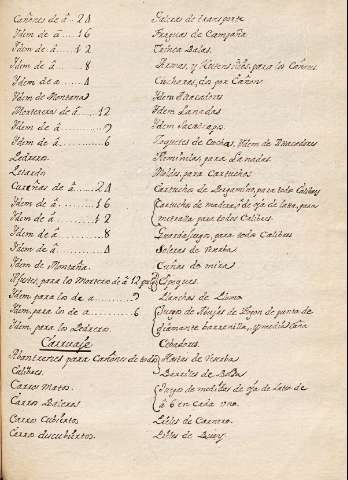 Cañones de â 24
Ydem de â 16
Ydem de â 12
Ydem de â 8
Ydem de â 4
Ydem de Montaña
Morteros de â 12
Ydem de â 9
Ydem de â 6
Pedrero
Petardo
Cureñas de â 24
Ydem de â 16
Ydem de â 12
Ydem de â 8
Ydem de â 4
Ydem de Montaña
Afustes, para los Morteros de â 12 pulg
Ydem, para los de â 9
Ydem, para los de â 6
Ydem, para los Pedreros
Carruaje
Abantrenes para Cañones de todos
Calibres
Carros Matos
Carros Baleros
Carro Cubierto
Carro descubierto
Galeras de transporte
Fraguas de Campaña
Trinca Balas
para los Cañones
Cucharas, dos por Cañon
Ydem Atacadores
Ydem Lanadas
Ydem Sacatrapos
Ydem de Atacadores
para Lanadas
Moldes, para Cartuchos
Cartuchos de Pergamino, para todo Calibre
Cartuchos de madera, de oja de lata, para
metralla para todos Calibres
Guardafuegos, para todo Calibre
Soleras de
Cuñas de mira
Espeques
Planchas de Plomo
Juego de Abujas de Fogon de punta de
diamante barrenilla, y media caña
Cebadores
de
Barriles de
Juego de de oja de Lata de
â 6 en cada uno
Pieles de Carnero
Pieles de Buey